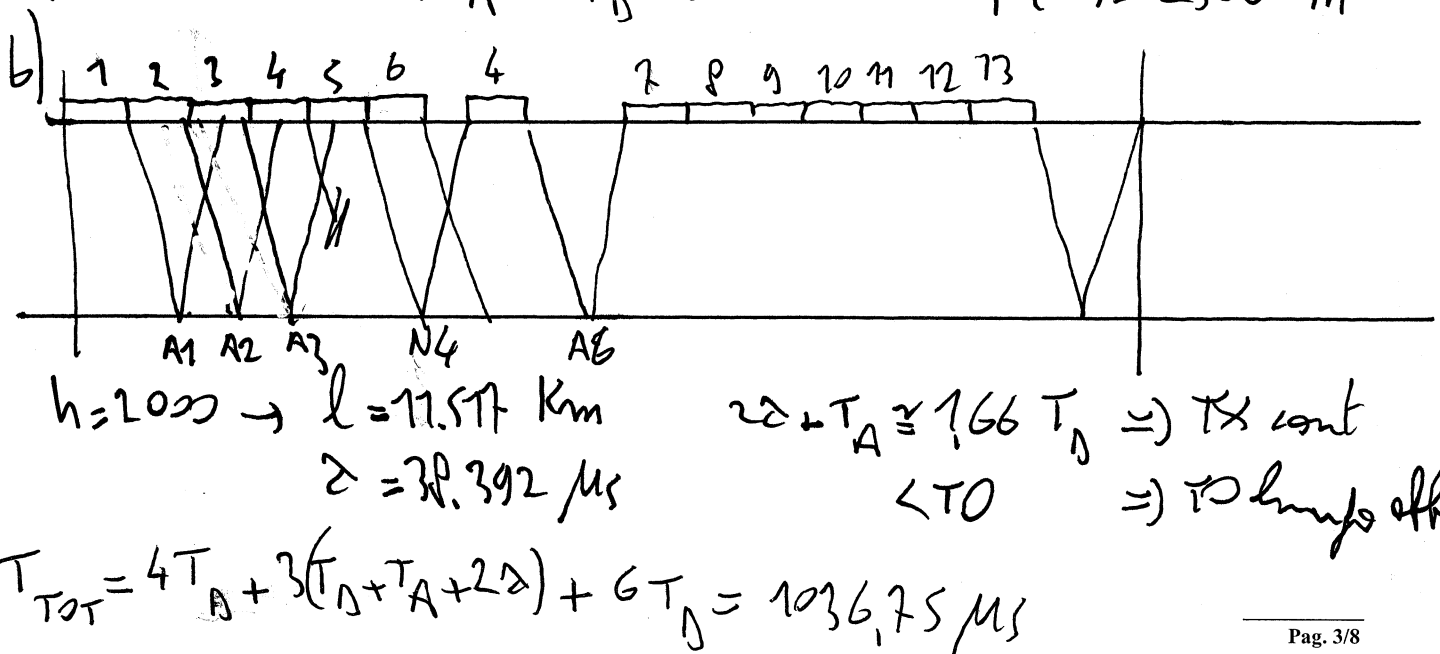 b)
1 2 3 4 5 6 4 7 8 9 10 11 12 13
A1 A2 A3 N4 A6
h=2000 → l=11.517 Km
2λ+T_A ≅ 1,66 T_D ⇒ TX cont
λ=38.392 μs
<TO ⇒ TO
T_TOT = 4T_D + 3(T_D+T_A+2λ) + 6T_D = 1036,75 μs
Pag. 3/8